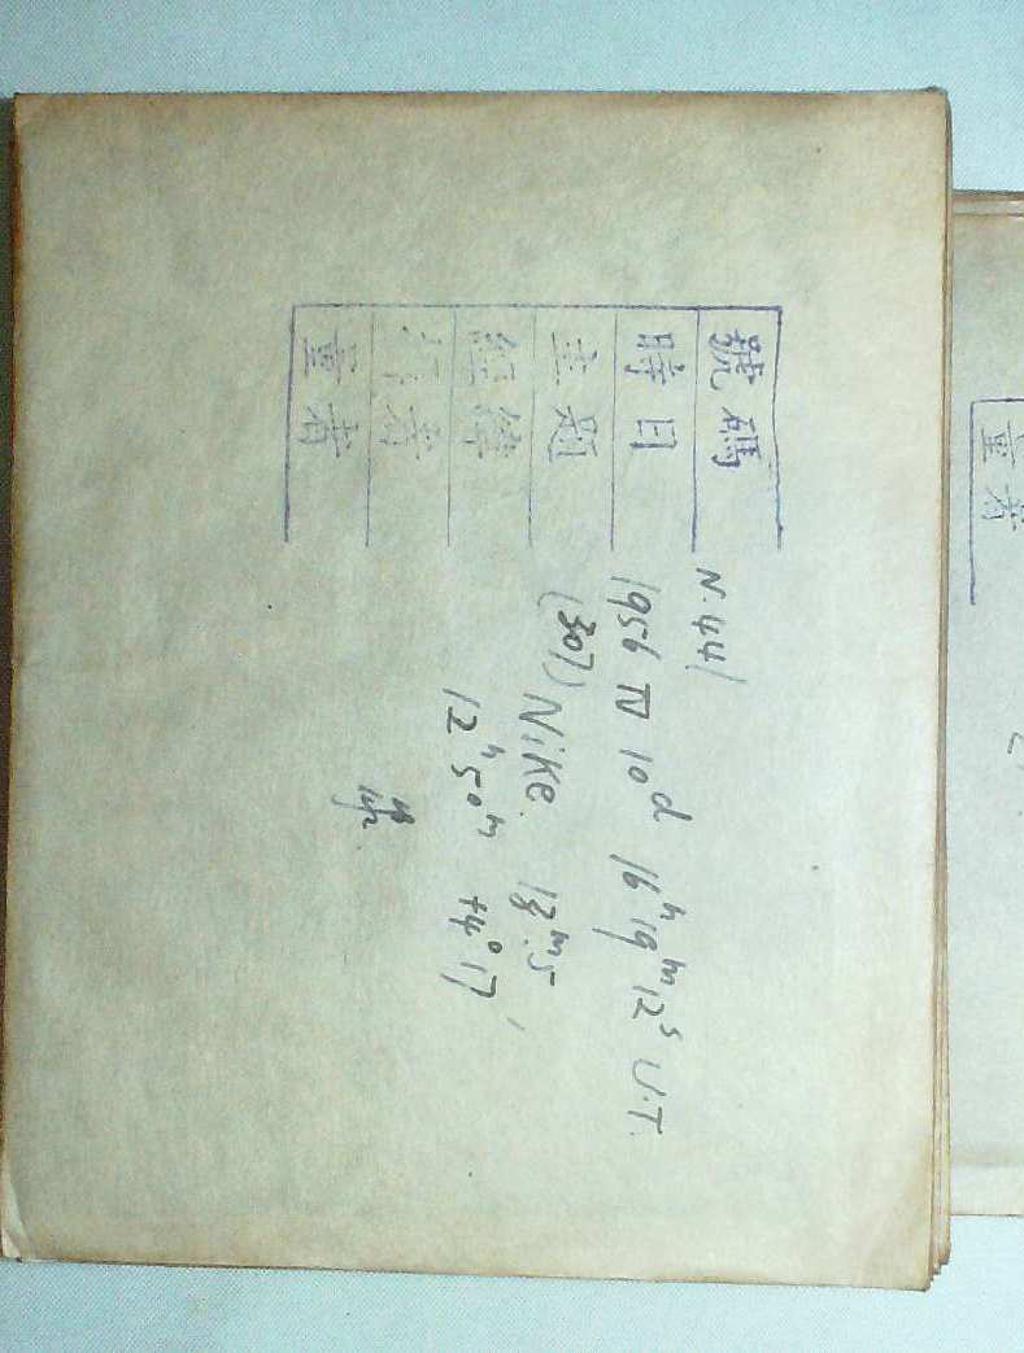 號碼 N.441
時日 1956 IV 10d 16h 19m 12s U.T.
主題 (307) Nike. 13m.5
經緯 12h 50m +4° 17'
者
量者
量者